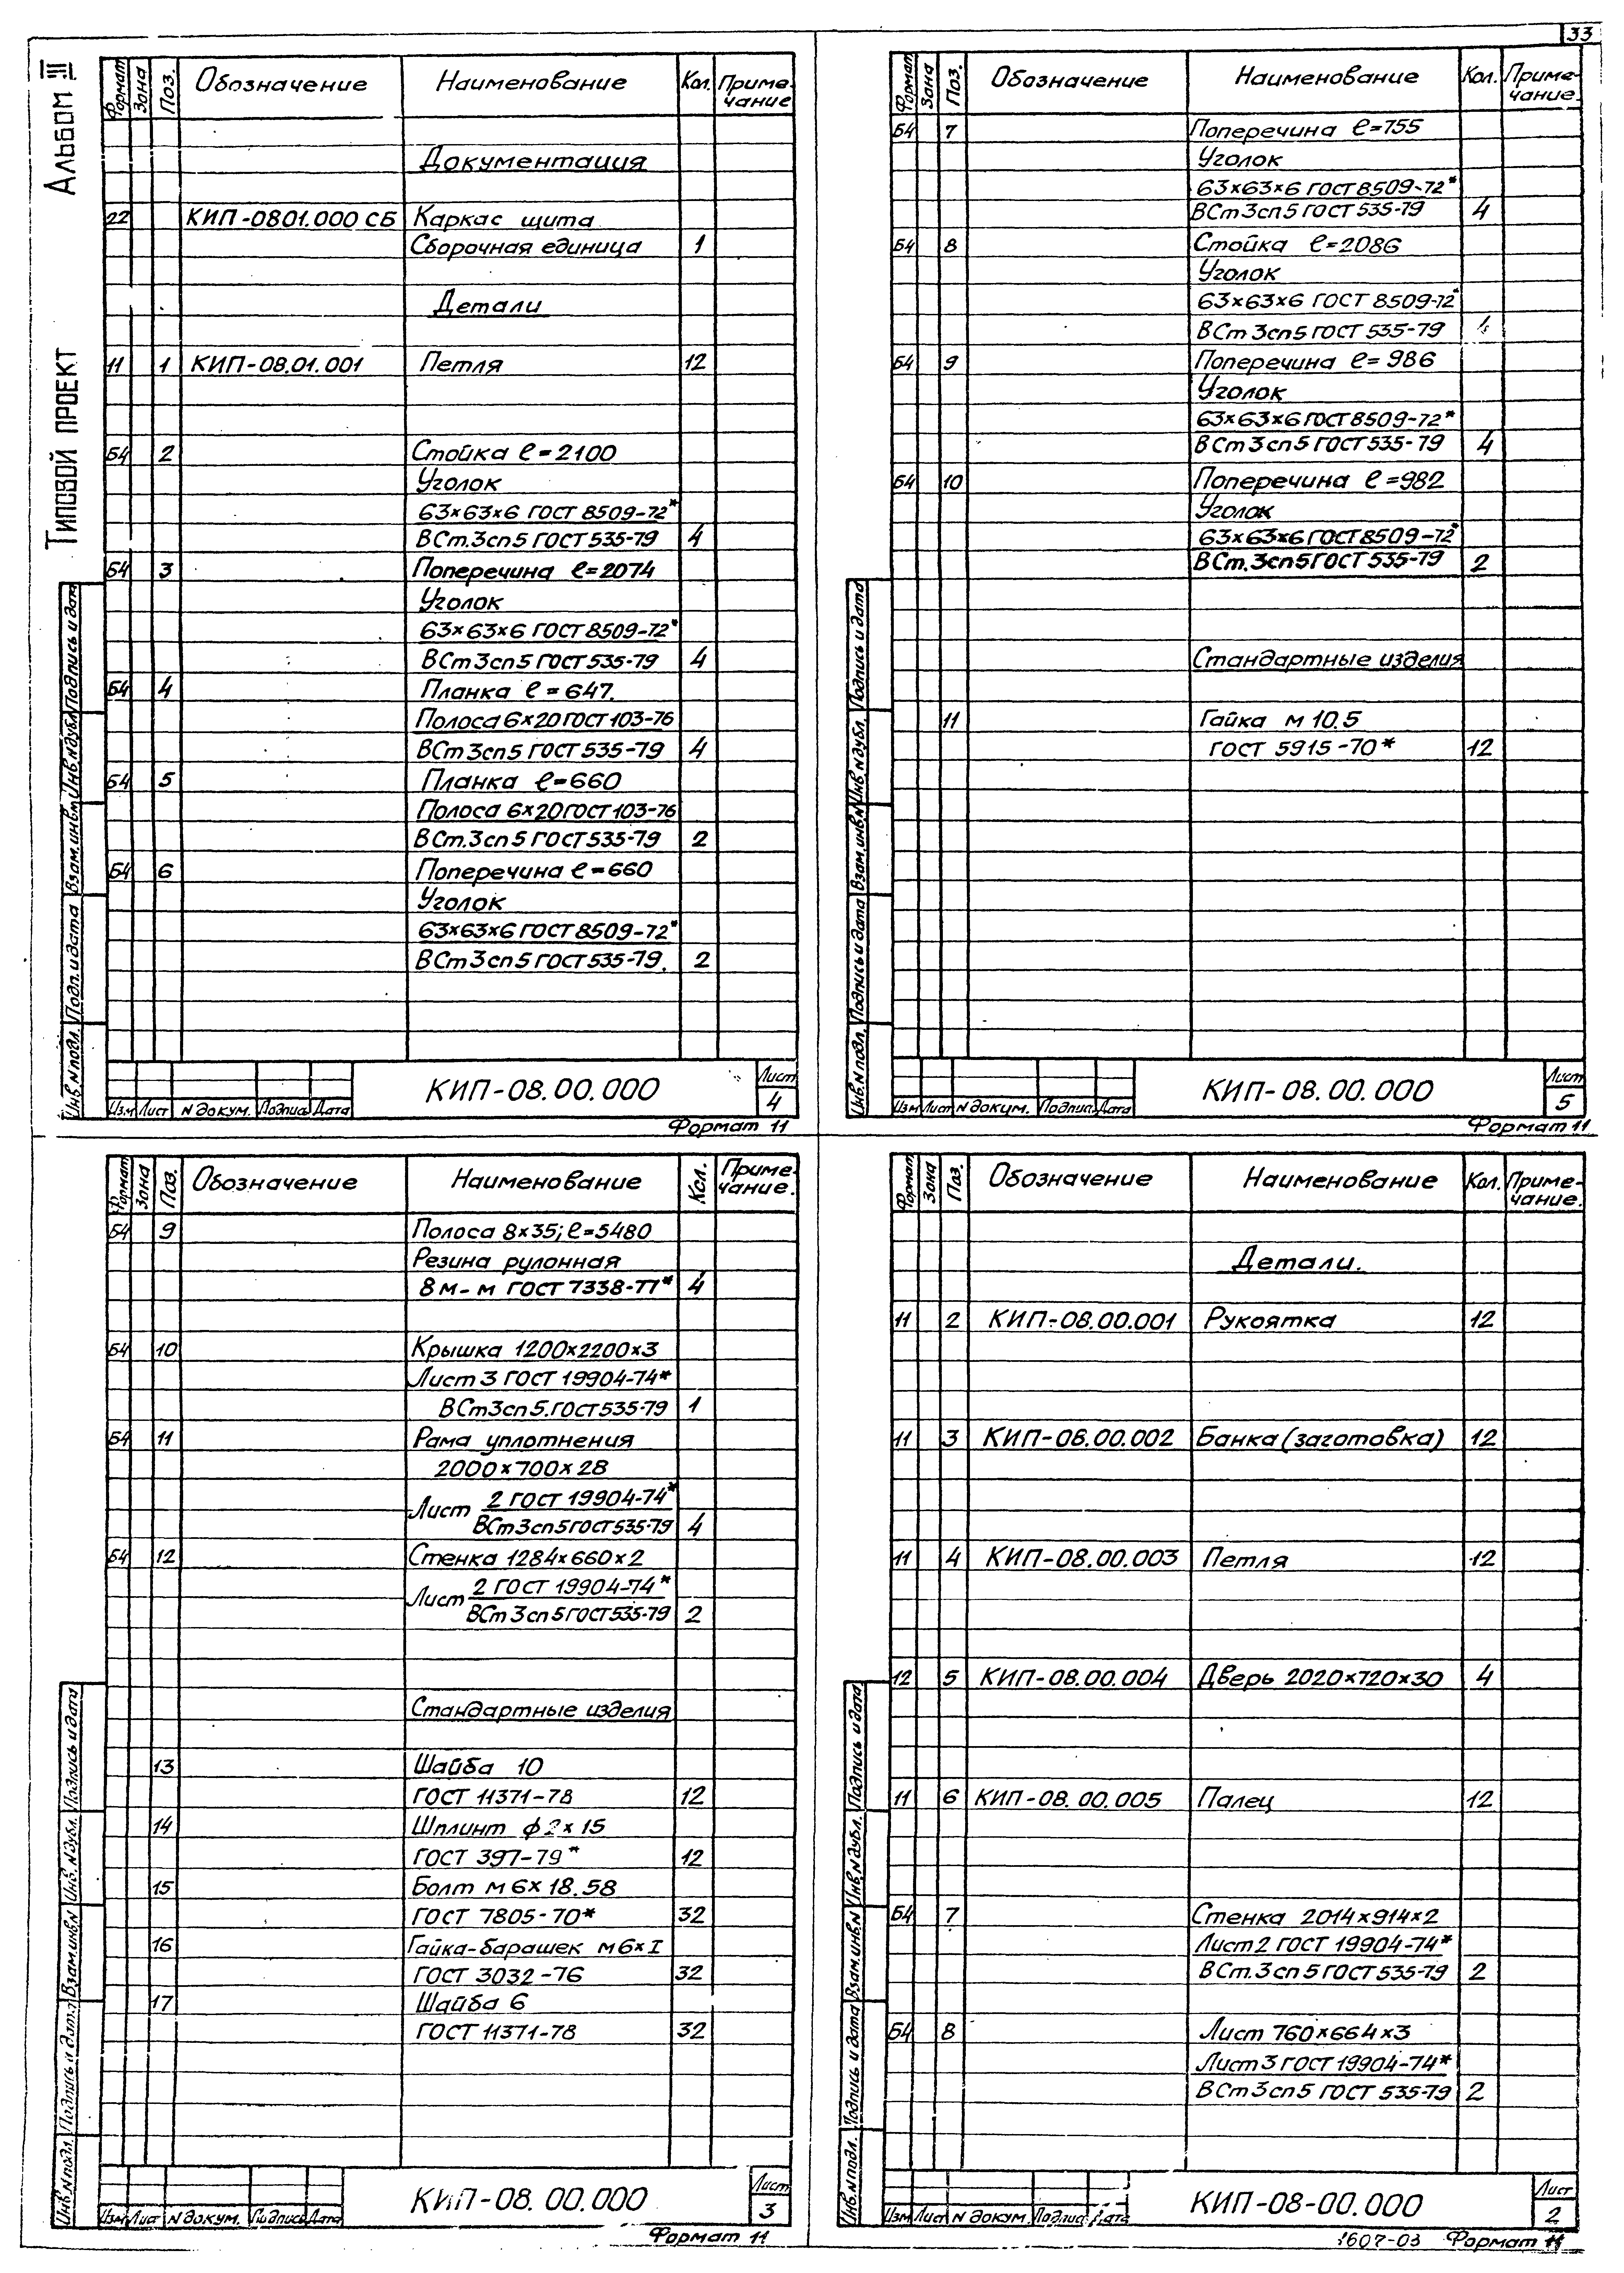 33
Альбом III
Типовой проект
Формат Зона Поз. Обозначение Наименование Кол. Приме-
чание
Документация
22 КИП-0801.000 СБ Каркас щита
Сборочная единица 1
Детали
11 1 КИП-08.01.001 Петля 12
Б4 2 Стойка ℓ=2100
Уголок
63×63×6 ГОСТ 8509-72*
ВСт.3сп5 ГОСТ 535-79 4
Б4 3 Поперечина ℓ=2074
Уголок
63×63×6 ГОСТ 8509-72*
ВСт3сп5 ГОСТ 535-79 4
Б4 4 Планка ℓ=647.
Полоса 6×20 ГОСТ 103-76
ВСт3сп5 ГОСТ 535-79 4
Б4 5 Планка ℓ=660
Полоса 6×20 ГОСТ 103-76
ВСт.3сп5 ГОСТ 535-79 2
Б4 6 Поперечина ℓ=660
Уголок
63×63×6 ГОСТ 8509-72*
ВСт3сп5 ГОСТ 535-79. 2
Инв.N подл. Подп. и дата Взам.инв.N Инв.N дубл. Подпись и дата
Изм Лист N докум. Подпись Дата
КИП-08.00.000
Лист
4
Формат 11
Формат Зона Поз. Обозначение Наименование Кол. Приме-
чание.
Б4 7 Поперечина ℓ=755
Уголок
63×63×6 ГОСТ 8509-72*
ВСт3сп5 ГОСТ 535-79 4
Б4 8 Стойка ℓ=2086
Уголок
63×63×6 ГОСТ 8509-72*
ВСт3сп5 ГОСТ 535-79
Б4 9 Поперечина ℓ=986
Уголок
63×63×6 ГОСТ 8509-72*
ВСт3сп5 ГОСТ 535-79 4
Б4 10 Поперечина ℓ=982
Уголок
63×63×6 ГОСТ 8509-72*
ВСт.3сп5 ГОСТ 535-79 2
Стандартные изделия
11 Гайка м 10.5
ГОСТ 5915-70* 12
Инв.N подл. Подпись и дата Взам.инв.N Инв.N дубл. Подпись и дата
Изм Лист N докум. Подпись Дата
КИП-08.00.000
Лист
5
Формат 11
Формат Зона Поз. Обозначение Наименование Кол. Приме-
чание.
Б4 9 Полоса 8×35; ℓ=5480
Резина рулонная
8 м-м ГОСТ 7338-77* 4
Б4 10 Крышка 1200×2200×3
Лист 3 ГОСТ 19904-74*
ВСт3сп5. ГОСТ 535-79 1
Б4 11 Рама уплотнения
2000×700×28
Лист 2 ГОСТ 19904-74*
ВСт3сп5 ГОСТ 535-79 4
Б4 12 Стенка 1284×660×2
Лист 2 ГОСТ 19904-74*
ВСт3сп5 ГОСТ 535-79 2
Стандартные изделия
13 Шайба 10
ГОСТ 11371-78 12
14 Шплинт ϕ2×15
ГОСТ 397-79* 12
15 Болт м6×18.58
ГОСТ 7805-70* 32
16 Гайка-барашек м6×I
ГОСТ 3032-76 32
17 Шайба 6
ГОСТ 11371-78 32
Инв.N подл. Подпись и дата Взам.инв.N Инв.N дубл. Подпись и дата
Изм Лист N докум. Подпись Дата
КИП-08.00.000
Лист
3
Формат 11
Формат Зона Поз. Обозначение Наименование Кол. Приме-
чание.
Детали.
11 2 КИП-08.00.001 Рукоятка 12
11 3 КИП-08.00.002 Банка (заготовка) 12
11 4 КИП-08.00.003 Петля 12
12 5 КИП-08.00.004 Дверь 2020×720×30 4
11 6 КИП-08.00.005 Палец 12
Б4 7 Стенка 2014×914×2
Лист 2 ГОСТ 19904-74*
ВСт.3сп5 ГОСТ 535-79 2
Б4 8 Лист 760×664×3
Лист 3 ГОСТ 19904-74*
ВСт3сп5 ГОСТ 535-79 2
Инв.N подл. Подпись и дата Взам.инв.N Инв.N дубл. Подпись и дата
Изм Лист N докум. Подпись Дата
КИП-08-00.000
Лист
2
1607-03 Формат 11